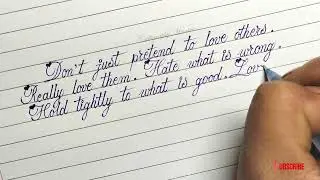 Don't just pretend to love others.
Really love them. Hate what is wrong.
Hold tightly to what is good. Lov
SUBSCRIBE